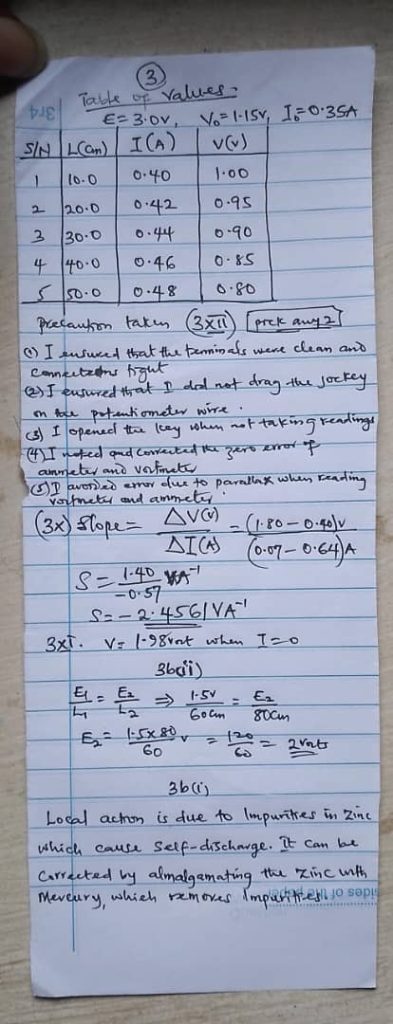 3
Table of values.
E = 3.0V, V₀ = 1.15V, I₀ = 0.35A
S/N L(cm) I(A) V(v)
1 10.0 0.40 1.00
2 20.0 0.42 0.95
3 30.0 0.44 0.90
4 40.0 0.46 0.85
5 50.0 0.48 0.80
Precaution taken (3xii) [pick any 2]
(1) I ensured that the terminals were clean and
connections tight
(2) I ensured that I did not drag the jockey
on the potentiometer wire.
(3) I opened the key when not taking readings
(4) I noted and corrected the zero error of
ammeter and voltmeter
(5) I avoided error due to parallax when reading
voltmeter and ammeter.
(3x) Slope = ΔV(v) / ΔI(A) = (1.80 - 0.40)V / (0.07 - 0.64)A
S = 1.40 / -0.57 VA⁻¹
S = -2.4561VA⁻¹
3xi. V = 1.98volt when I = 0
3b(ii)
E₁/L₁ = E₂/L₂ ⇒ 1.5V/60cm = E₂/80cm
E₂ = 1.5x80/60 v = 120/60 = 2volts
3b(i)
Local action is due to Impurities in Zinc
which cause self-discharge. It can be
corrected by almalgamating the zinc with
Mercury, which removes Impurities.